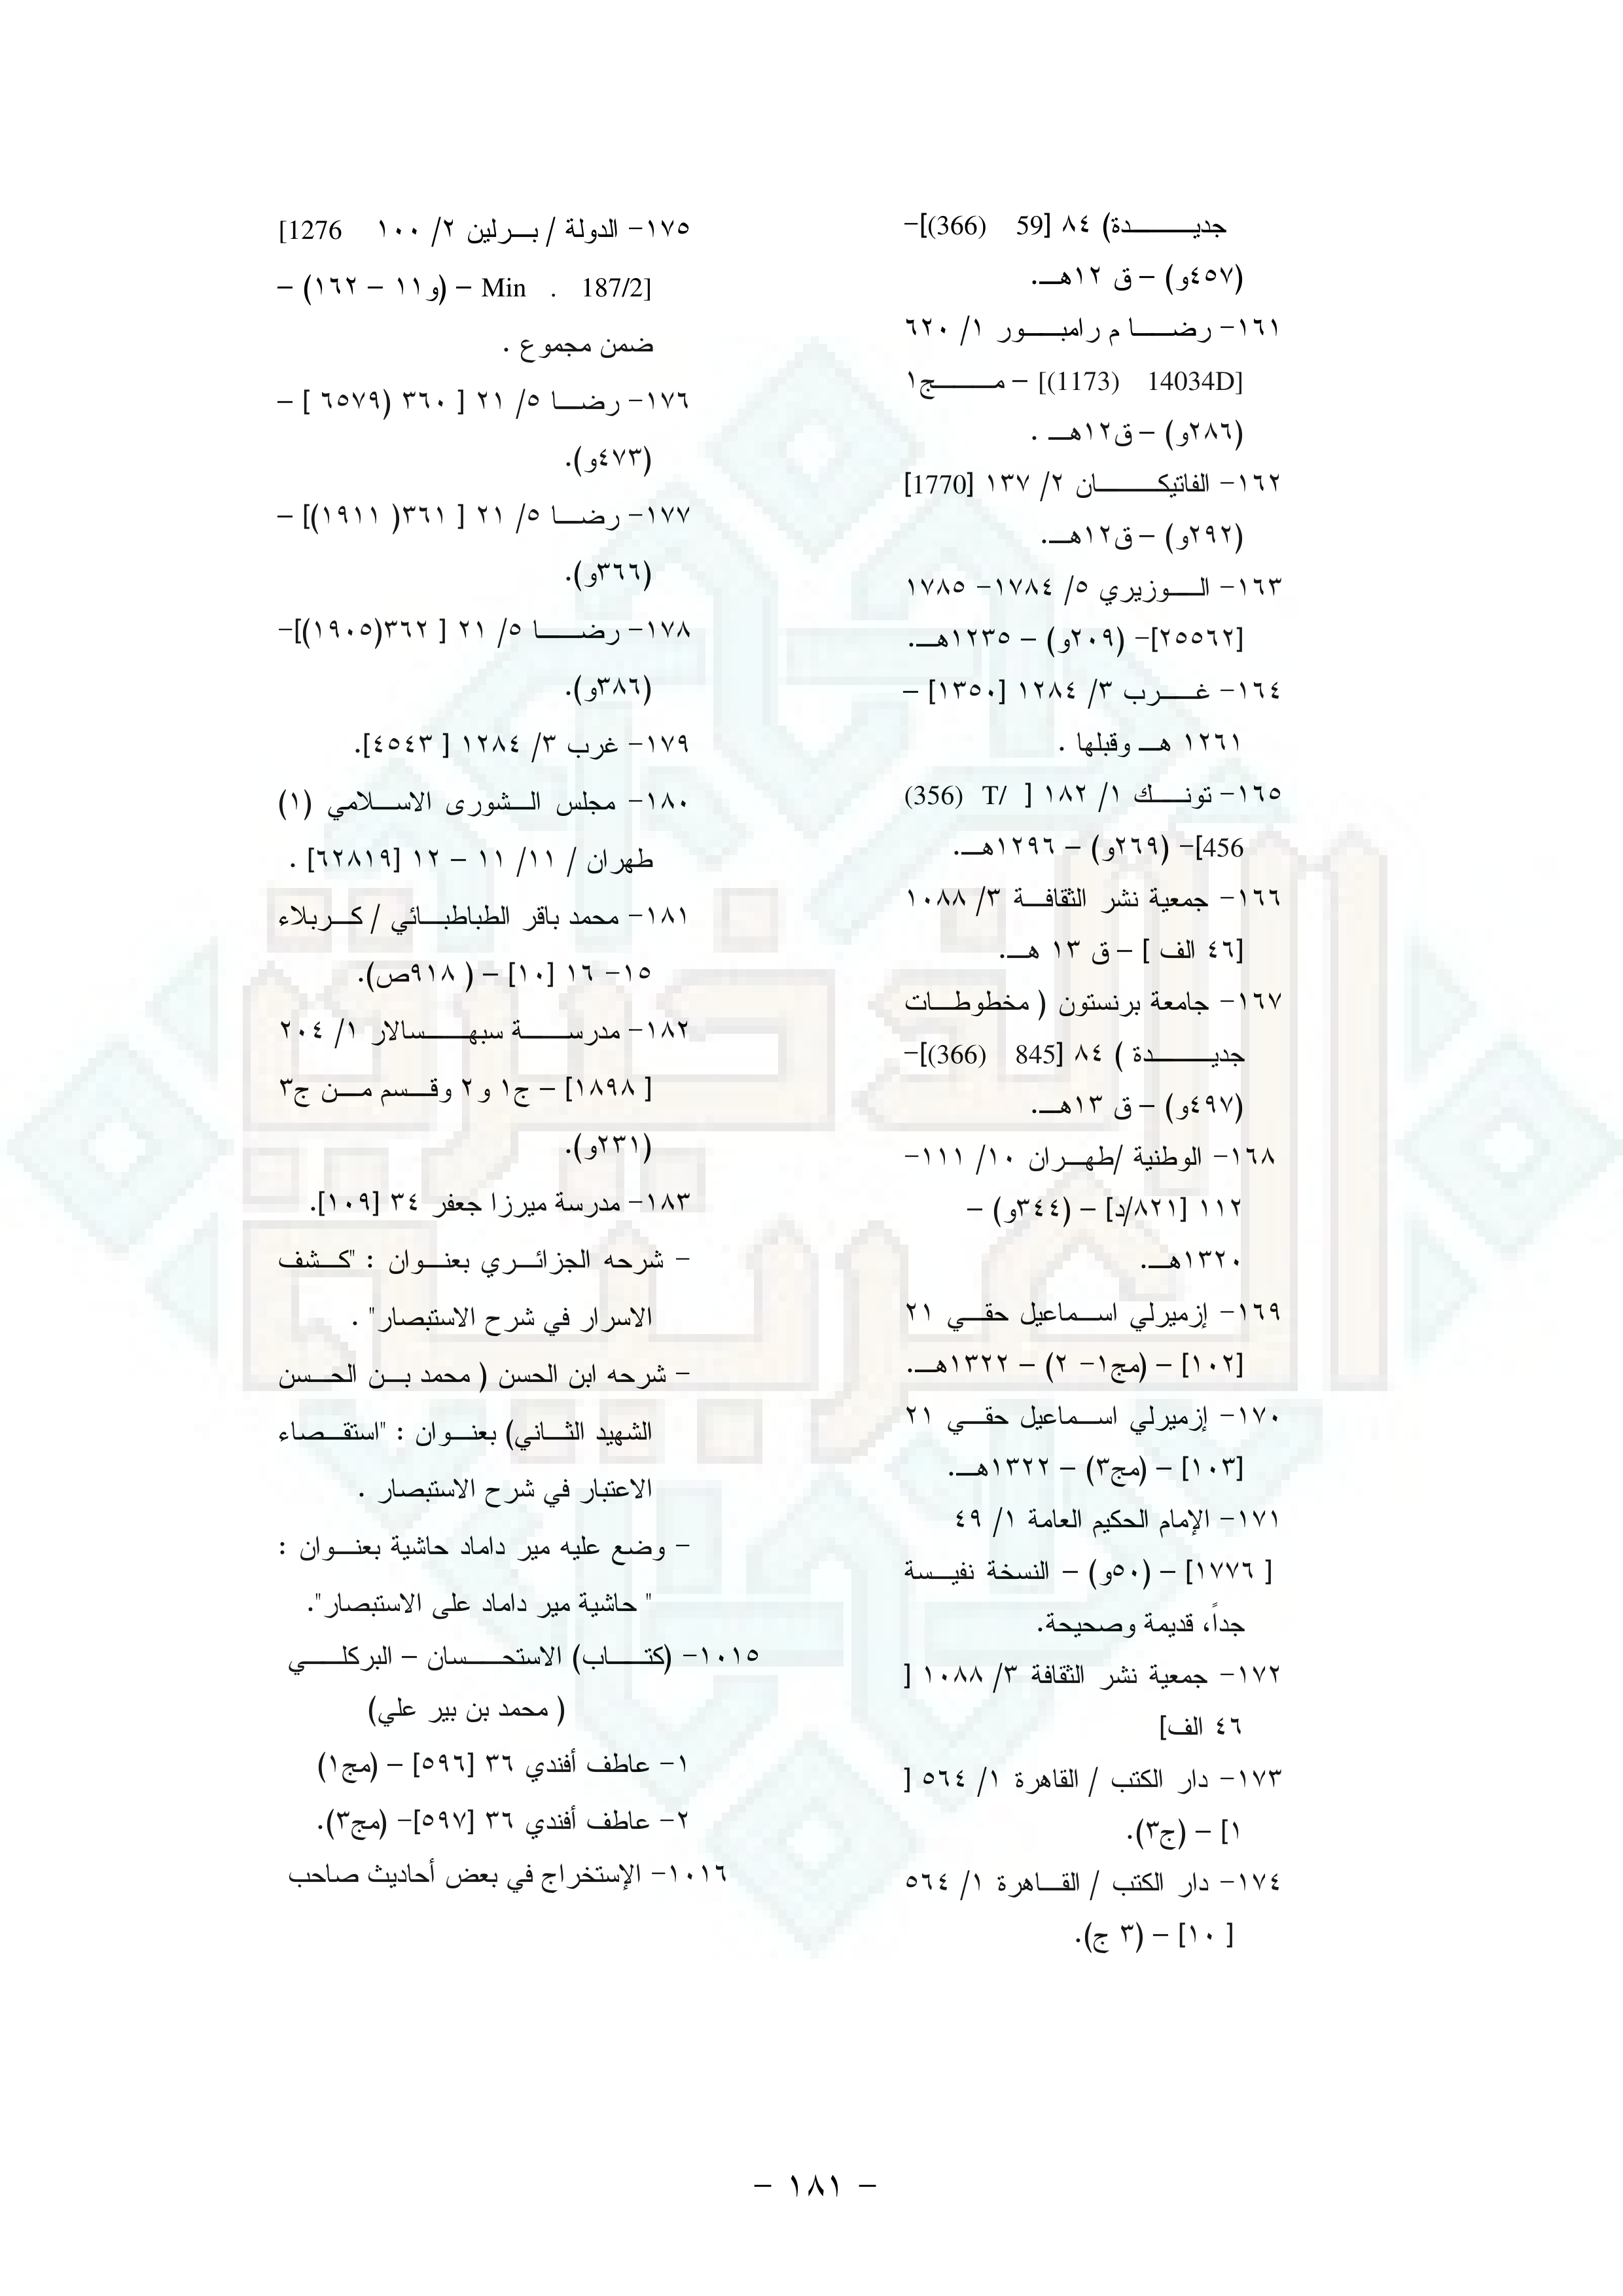 جديدة) ٨٤ [59 (366)]-
(٤٥٧و) – ق ١٢هـ.
١٦١- رضا م رامبور ١/ ٦٢٠
[14034D (1173)] – مج١
(٢٨٦و) – ق١٢هـ .
١٦٢- الفاتيكان ٢/ ١٣٧ [1770]
(٢٩٢و) – ق١٢هـ.
١٦٣- الوزيري ٥/ ١٧٨٤- ١٧٨٥
[٢٥٥٦٢]- (٢٠٩و) – ١٢٣٥هـ.
١٦٤- غرب ٣/ ١٢٨٤ [١٣٥٠] –
١٢٦١ هـ وقبلها .
١٦٥- تونك ١/ ١٨٢ [ T/ (356)
456]- (٢٦٩و) – ١٢٩٦هـ.
١٦٦- جمعية نشر الثقافة ٣/ ١٠٨٨
[٤٦ الف ] – ق ١٣ هـ.
١٦٧- جامعة برنستون ( مخطوطات
جديدة ) ٨٤ [845 (366)]-
(٤٩٧و) – ق ١٣هـ.
١٦٨- الوطنية /طهران ١٠/ ١١١-
١١٢ [٨٢١/د] – (٣٤٤و) –
١٣٢٠هـ.
١٦٩- إزميرلي اسماعيل حقي ٢١
[١٠٢] – (مج١- ٢) – ١٣٢٢هـ.
١٧٠- إزميرلي اسماعيل حقي ٢١
[١٠٣] – (مج٣) – ١٣٢٢هـ.
١٧١- الإمام الحكيم العامة ١/ ٤٩
[ ١٧٧٦] – (٥٠و) – النسخة نفيسة
جداً، قديمة وصحيحة.
١٧٢- جمعية نشر الثقافة ٣/ ١٠٨٨ [
٤٦ الف]
١٧٣- دار الكتب / القاهرة ١/ ٥٦٤ [
١] – (ج٣).
١٧٤- دار الكتب / القاهرة ١/ ٥٦٤
[ ١٠] – (٣ ج).
١٧٥- الدولة / برلين ٢/ ١٠٠ [1276
Min . 187/2] – (و١١ – ١٦٢) –
ضمن مجموع .
١٧٦- رضا ٥/ ٢١ [ ٣٦٠ (٦٥٧٩ ] –
(٤٧٣و).
١٧٧- رضا ٥/ ٢١ [ ٣٦١( ١٩١١)] –
(٣٦٦و).
١٧٨- رضا ٥/ ٢١ [ ٣٦٢(١٩٠٥)]-
(٣٨٦و).
١٧٩- غرب ٣/ ١٢٨٤ [ ٤٥٤٣].
١٨٠- مجلس الشورى الاسلامي (١)
طهران / ١١/ ١١ – ١٢ [٦٢٨١٩] .
١٨١- محمد باقر الطباطبائي / كربلاء
١٥- ١٦ [١٠] – ( ٩١٨ص).
١٨٢- مدرسة سبهسالار ١/ ٢٠٤
[ ١٨٩٨] – ج١ و٢ وقسم من ج٣
(٢٣١و).
١٨٣- مدرسة ميرزا جعفر ٣٤ [١٠٩].
- شرحه الجزائري بعنوان : "كشف
الاسرار في شرح الاستبصار" .
- شرحه ابن الحسن ( محمد بن الحسن
الشهيد الثاني) بعنوان : "استقصاء
الاعتبار في شرح الاستبصار .
- وضع عليه مير داماد حاشية بعنوان :
" حاشية مير داماد على الاستبصار".
١٠١٥- (كتاب) الاستحسان – البركلي
( محمد بن بير علي)
١- عاطف أفندي ٣٦ [٥٩٦] – (مج١)
٢- عاطف أفندي ٣٦ [٥٩٧]- (مج٣).
١٠١٦- الإستخراج في بعض أحاديث صاحب
- ١٨١ -